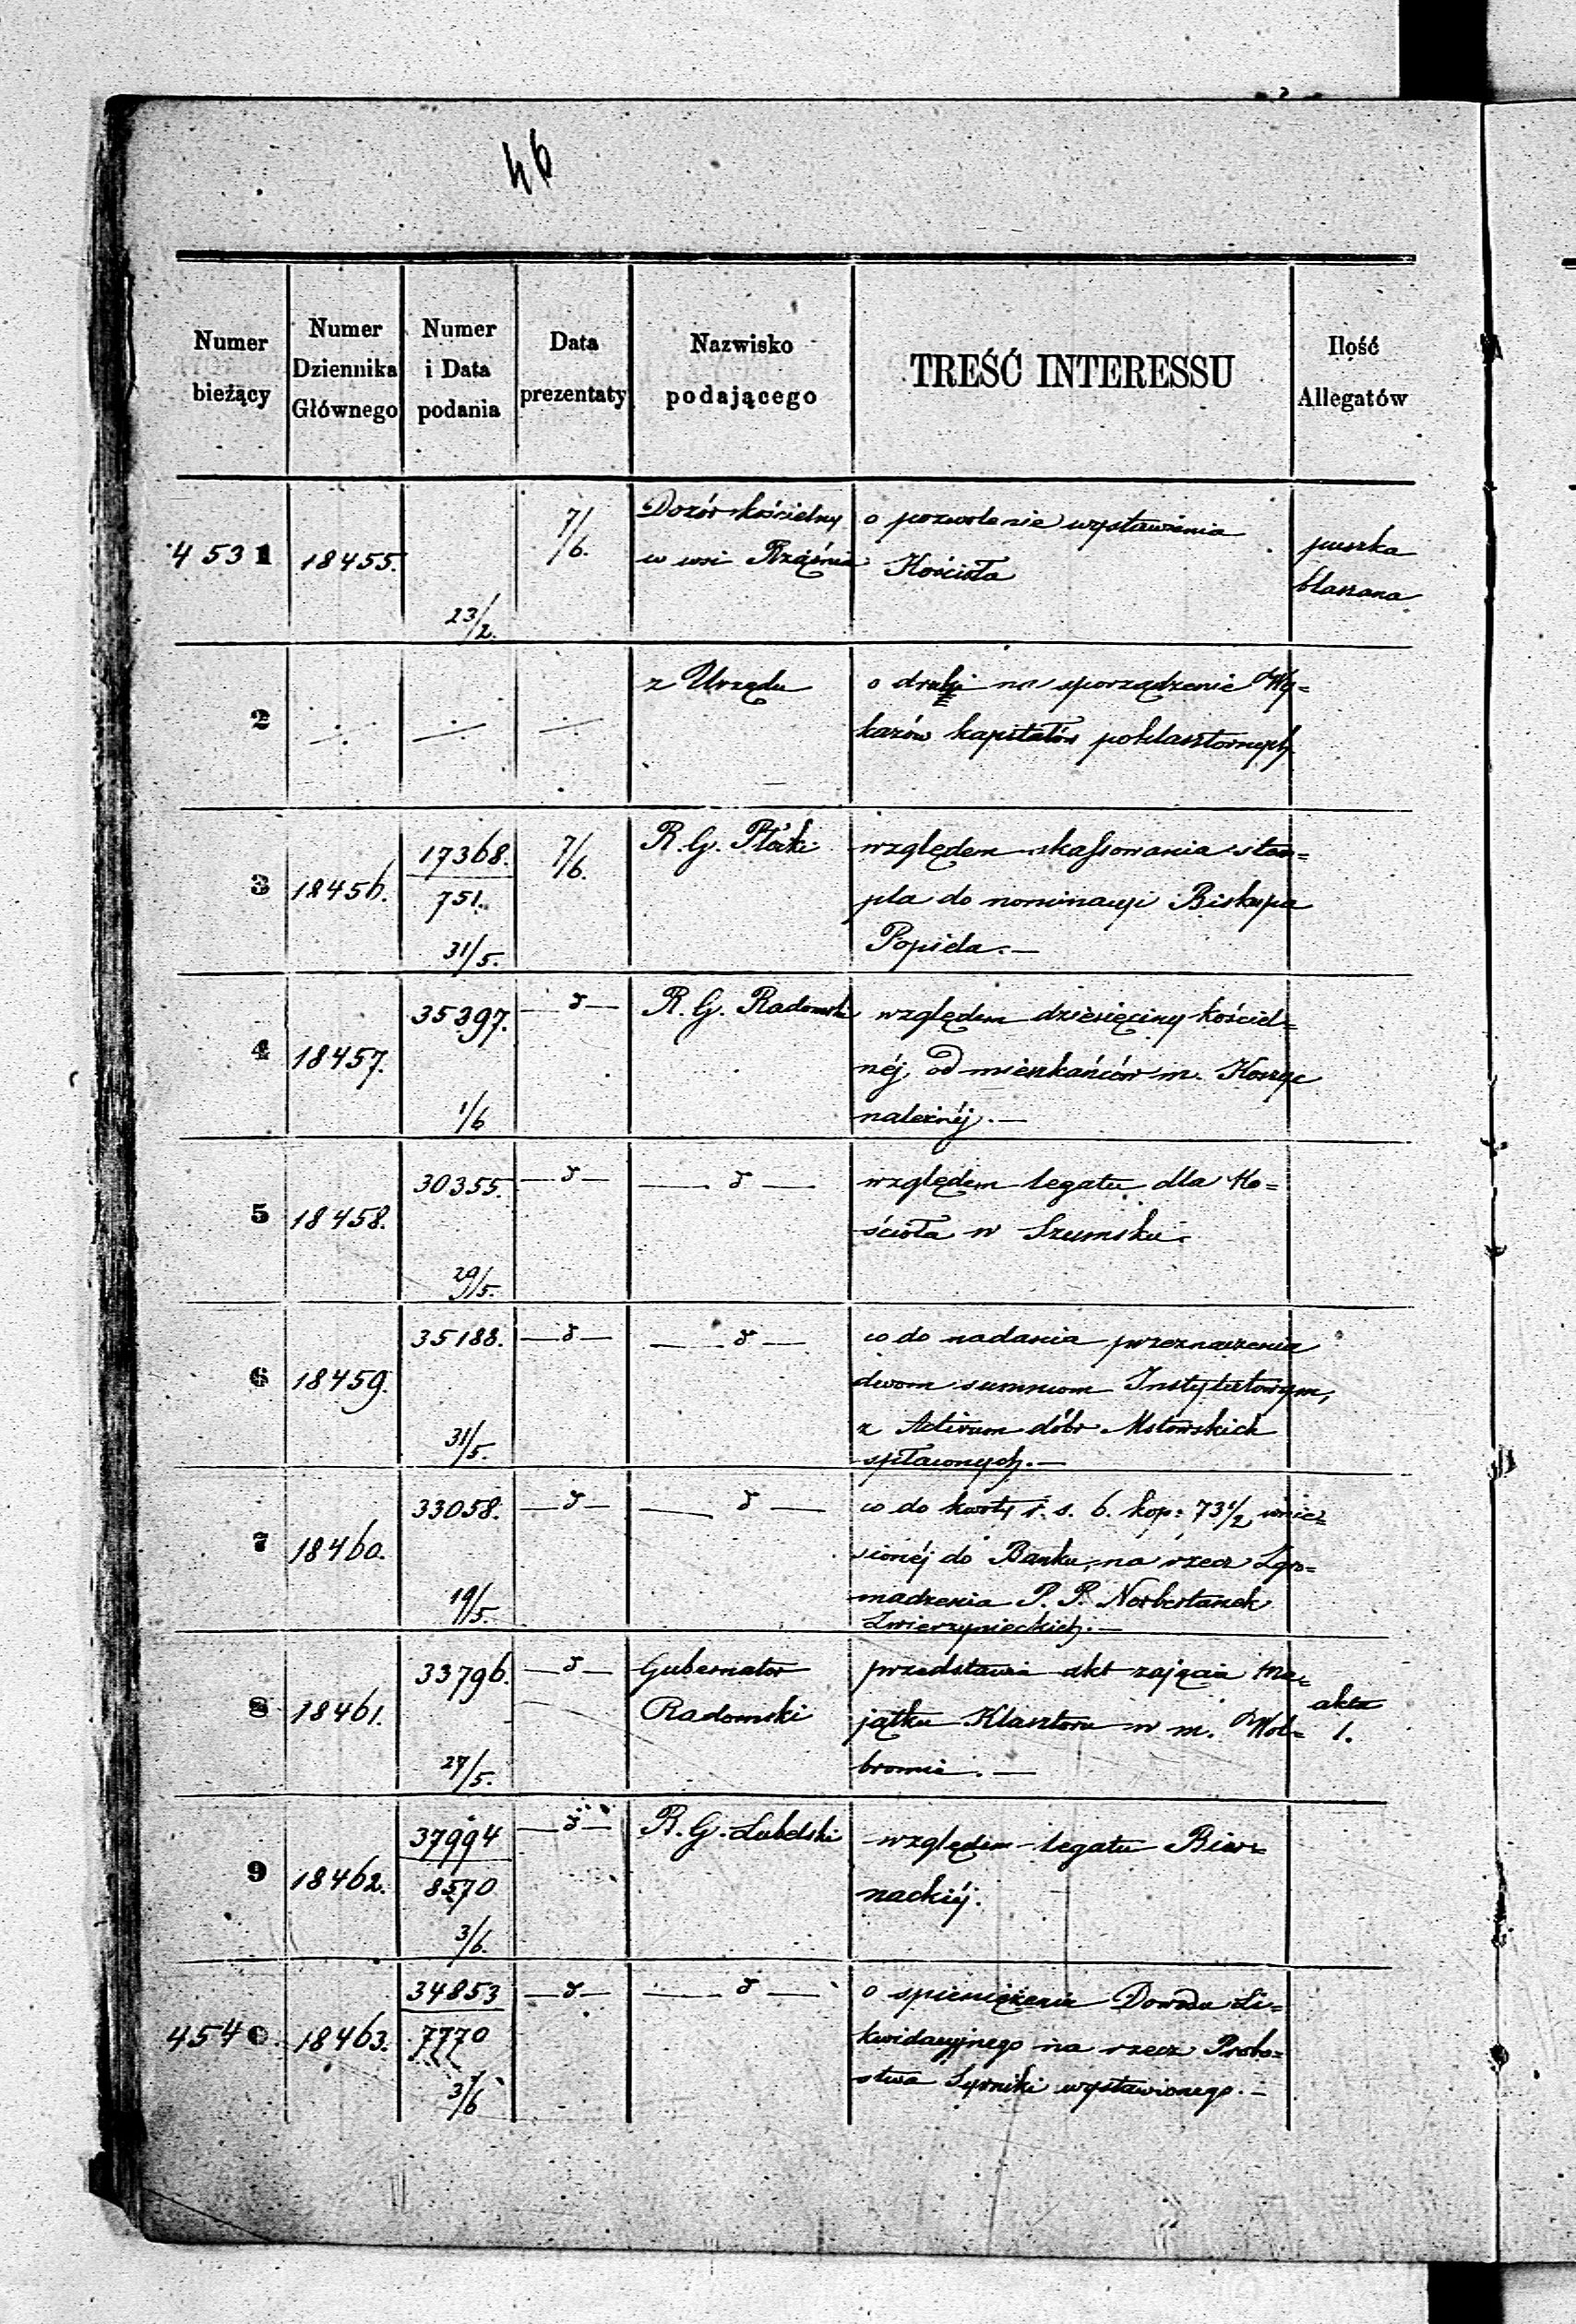 46
Numer bieżący | Numer Dziennika Głównego | Numer i Data podania | Data prezentaty | Nazwisko podającego | TREŚĆ INTERESSU | Ilość Allegatów
4531 | 18455. | 23/2. | 7/6. | Dozór kościelny | o pozwolenie wystawienia | puszka
w wsi Rząśnia | Kościoła | blaszana
2 | z Urzędu | o druki na sporządzenie Wy=
kazów kapitałów poklasztornych
3 | 18456. | 17368. | 7/6. | R. G. Płocki | względem skassowania stem=
751. | pla do nominacyi Biskupa
31/5. | Popiela.—
4 | 18457. | 35397. | —d— | R. G. Radomski | względem dziesięciny kościel=
néj, od mieszkańców m. Koszyc
1/6 | należnéj.—
5 | 18458. | 30355. | —d— | —d— | względem legatu dla Ko=
ścioła w Szumsku.
29/5.
6 | 18459. | 35188. | —d— | —d— | co do nadania przeznaczenia
dwom summom Instytutowym,
31/5. | z Activum dóbr Mstowskich
spłaconych.—
7 | 18460. | 33058. | —d— | —d— | co do kwoty r. s. 6. kop: 73 1/2 wnie=
sionéj do Banku, na rzecz Zgro=
19/5. | madzenia P. P. Norbertanek
Zwierzynieckich.—
8 | 18461. | 33796. | —d— | Gubernator | przedstawia akt zajęcia Ma=
Radomski | jątku Klasztoru w m. Wol= | 1.
27/5. | bromie.—
9 | 18462. | 37994 | —d— | R. G. Lubelski | względem legatu Bier=
8570 | nackiéj.
3/6.
4540. | 18463. | 34853 | —d— | —d— | o spieniężenie Dowodu Li=
7770 | kwidacyjnego na rzecz Probo=
3/6 | stwa Syrniki wystawionego.—